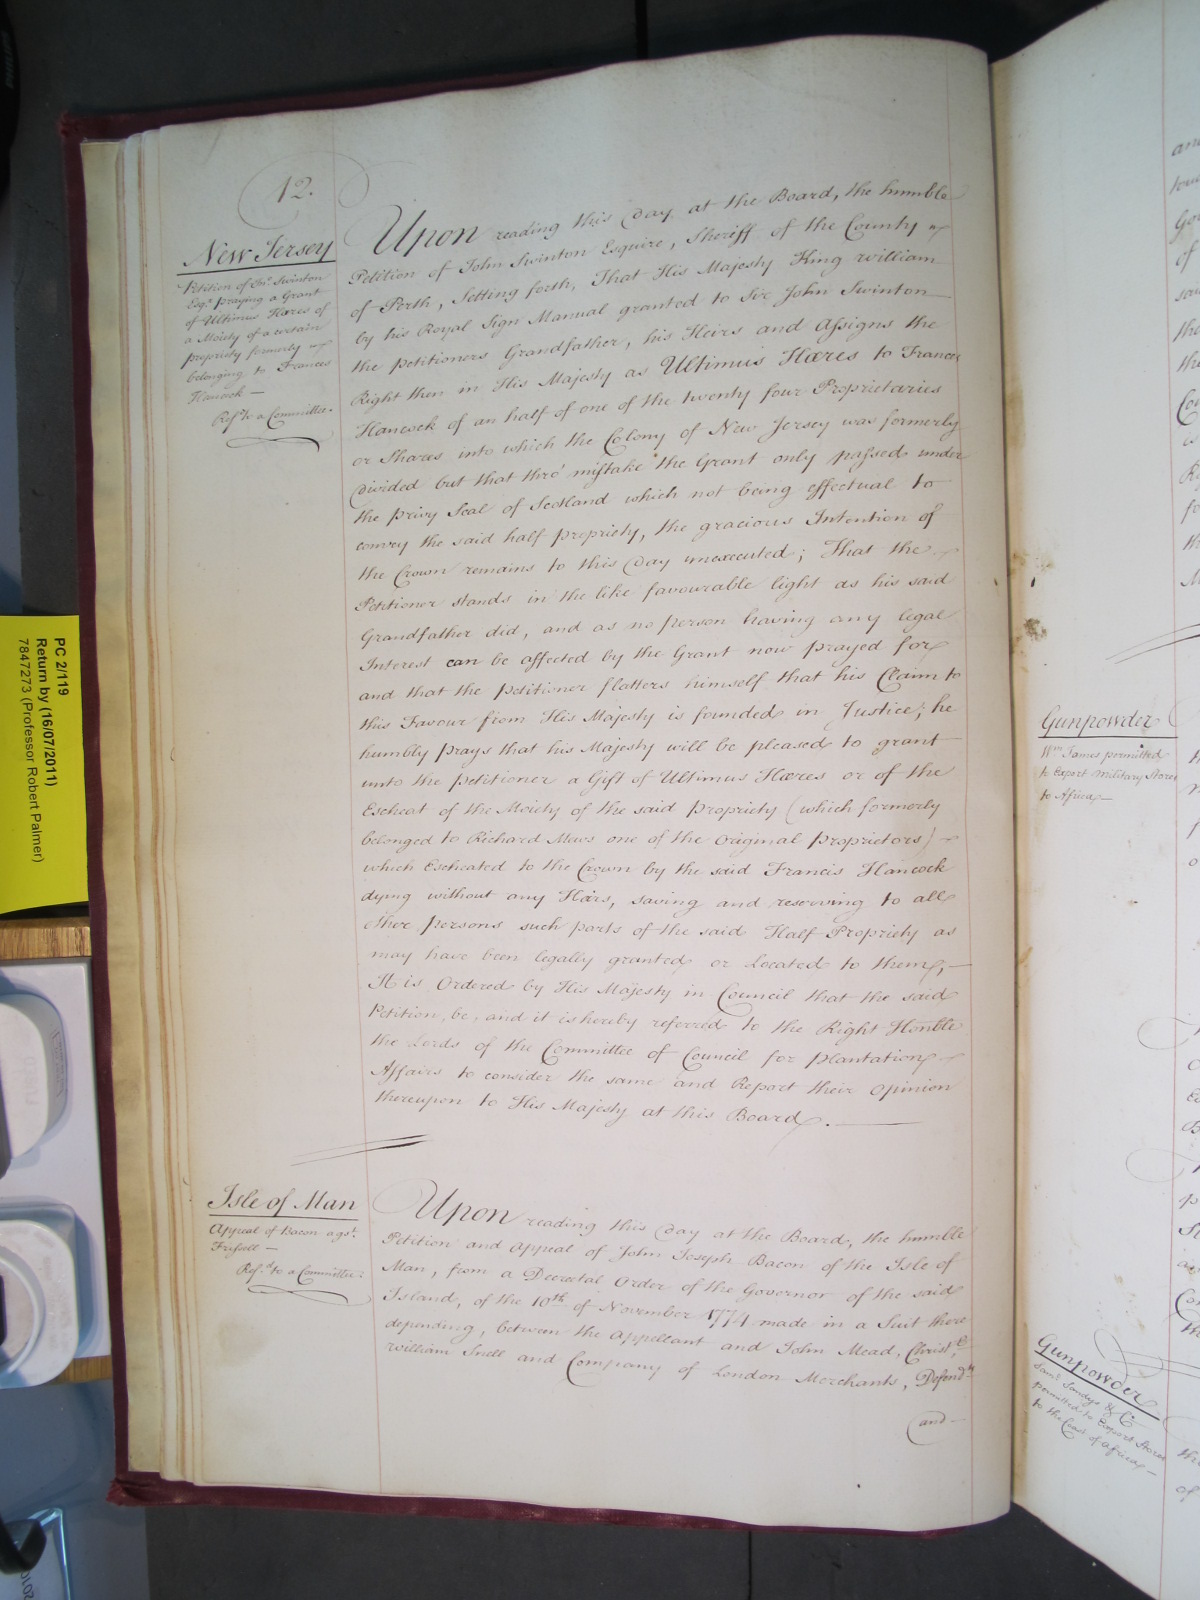 12.
New Jersey
Petition of Jno. Swinton
Esqr. praying a Grant
of Ultimus Hæres of
a Moiety of a certain
propriety formerly
belonging to Frances
Hancock —
Refd. to a Committee.
Upon reading this Day at the Board, the humble
Petition of John Swinton Esquire, Sheriff of the County
of Perth, Setting forth, That His Majesty King William
by his Royal Sign Manual granted to Sir John Swinton
the Petitioners Grandfather, his Heirs and Assigns the
Right then in His Majesty as Ultimus Hæres to Frances
Hancock of an half of one of the twenty four Proprietaries
or Shares into which the Colony of New Jersey was formerly
divided but that thro' mistake the Grant only passed under
the privy Seal of Scotland which not being effectual to
convey the said half propriety, the gracious Intention of
the Crown remains to this Day unexecuted; That the
Petitioner stands in the like favourable light as his said
Grandfather did, and as no person having any legal
Interest can be affected by the Grant now prayed for
and that the Petitioner flatters himself that his Claim to
this Favour from His Majesty is founded in Justice; he
humbly prays that his Majesty will be pleased to grant
unto the Petitioner a Gift of Ultimus Hæres or of the
Escheat of the Moiety of the said Propriety (which formerly
belonged to Richard Mews one of the Original Proprietors)
which Escheated to the Crown by the said Francis Hancock
dying without any Heirs, saving and reserving to all
other persons such parts of the said Half Propriety as
may have been legally granted or Located to them; —
It is Ordered by His Majesty in Council that the said
Petition, be, and it is hereby referred to the Right Honble
the Lords of the Committee of Council for Plantation
Affairs to consider the same and Report their Opinion
thereupon to His Majesty at this Board. —
Isle of Man
Appeal of Bacon agst.
Frissell —
Refd. to a Committee.
Upon reading this Day at the Board, the humble
Petition and Appeal of John Joseph Bacon of the Isle of
Man, from a Decretal Order of the Governor of the said
Island, of the 10th of November 1774 made in a Suit there
depending, between the Appellant and John Mead, Christr.
William Snell and Company of London Merchants, Defendts
(and —
Gunpowder
Wm. James permitted
to Export Military Stores
to Africa —
Gunpowder
Saml. Sandys & Co
permitted to Export Stores
to the Coast of Africa —
PC 2/119
Return by (16/07/2011)
7847273 (Professor Robert Palmer)